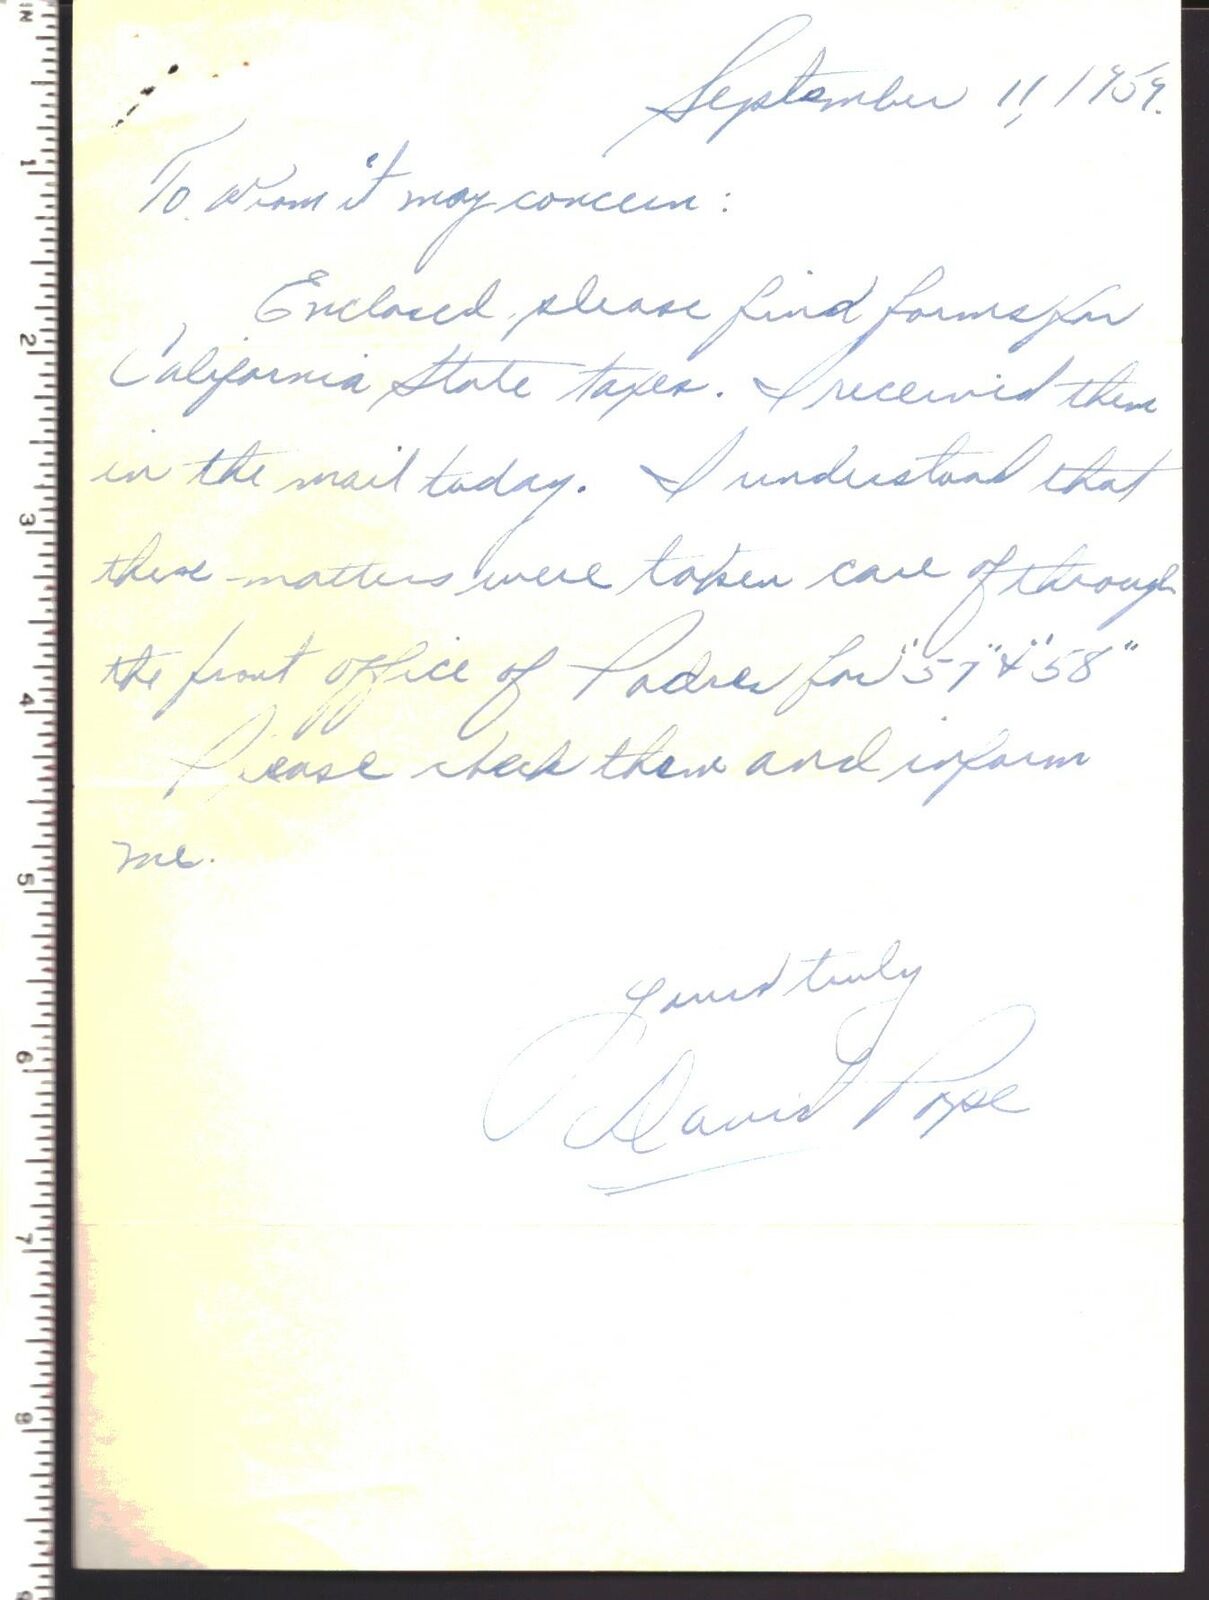 September 11, 1959.
To whom it may concern:
Enclosed please find forms for
California State taxes. I received them
in the mail today. I understood that
these matters were taken care of through
the front office of Padres for "57" & "58"
Please check them and inform
me.
Yours truly
David Pope
IN
1
2
3
4
5
6
7
8
9